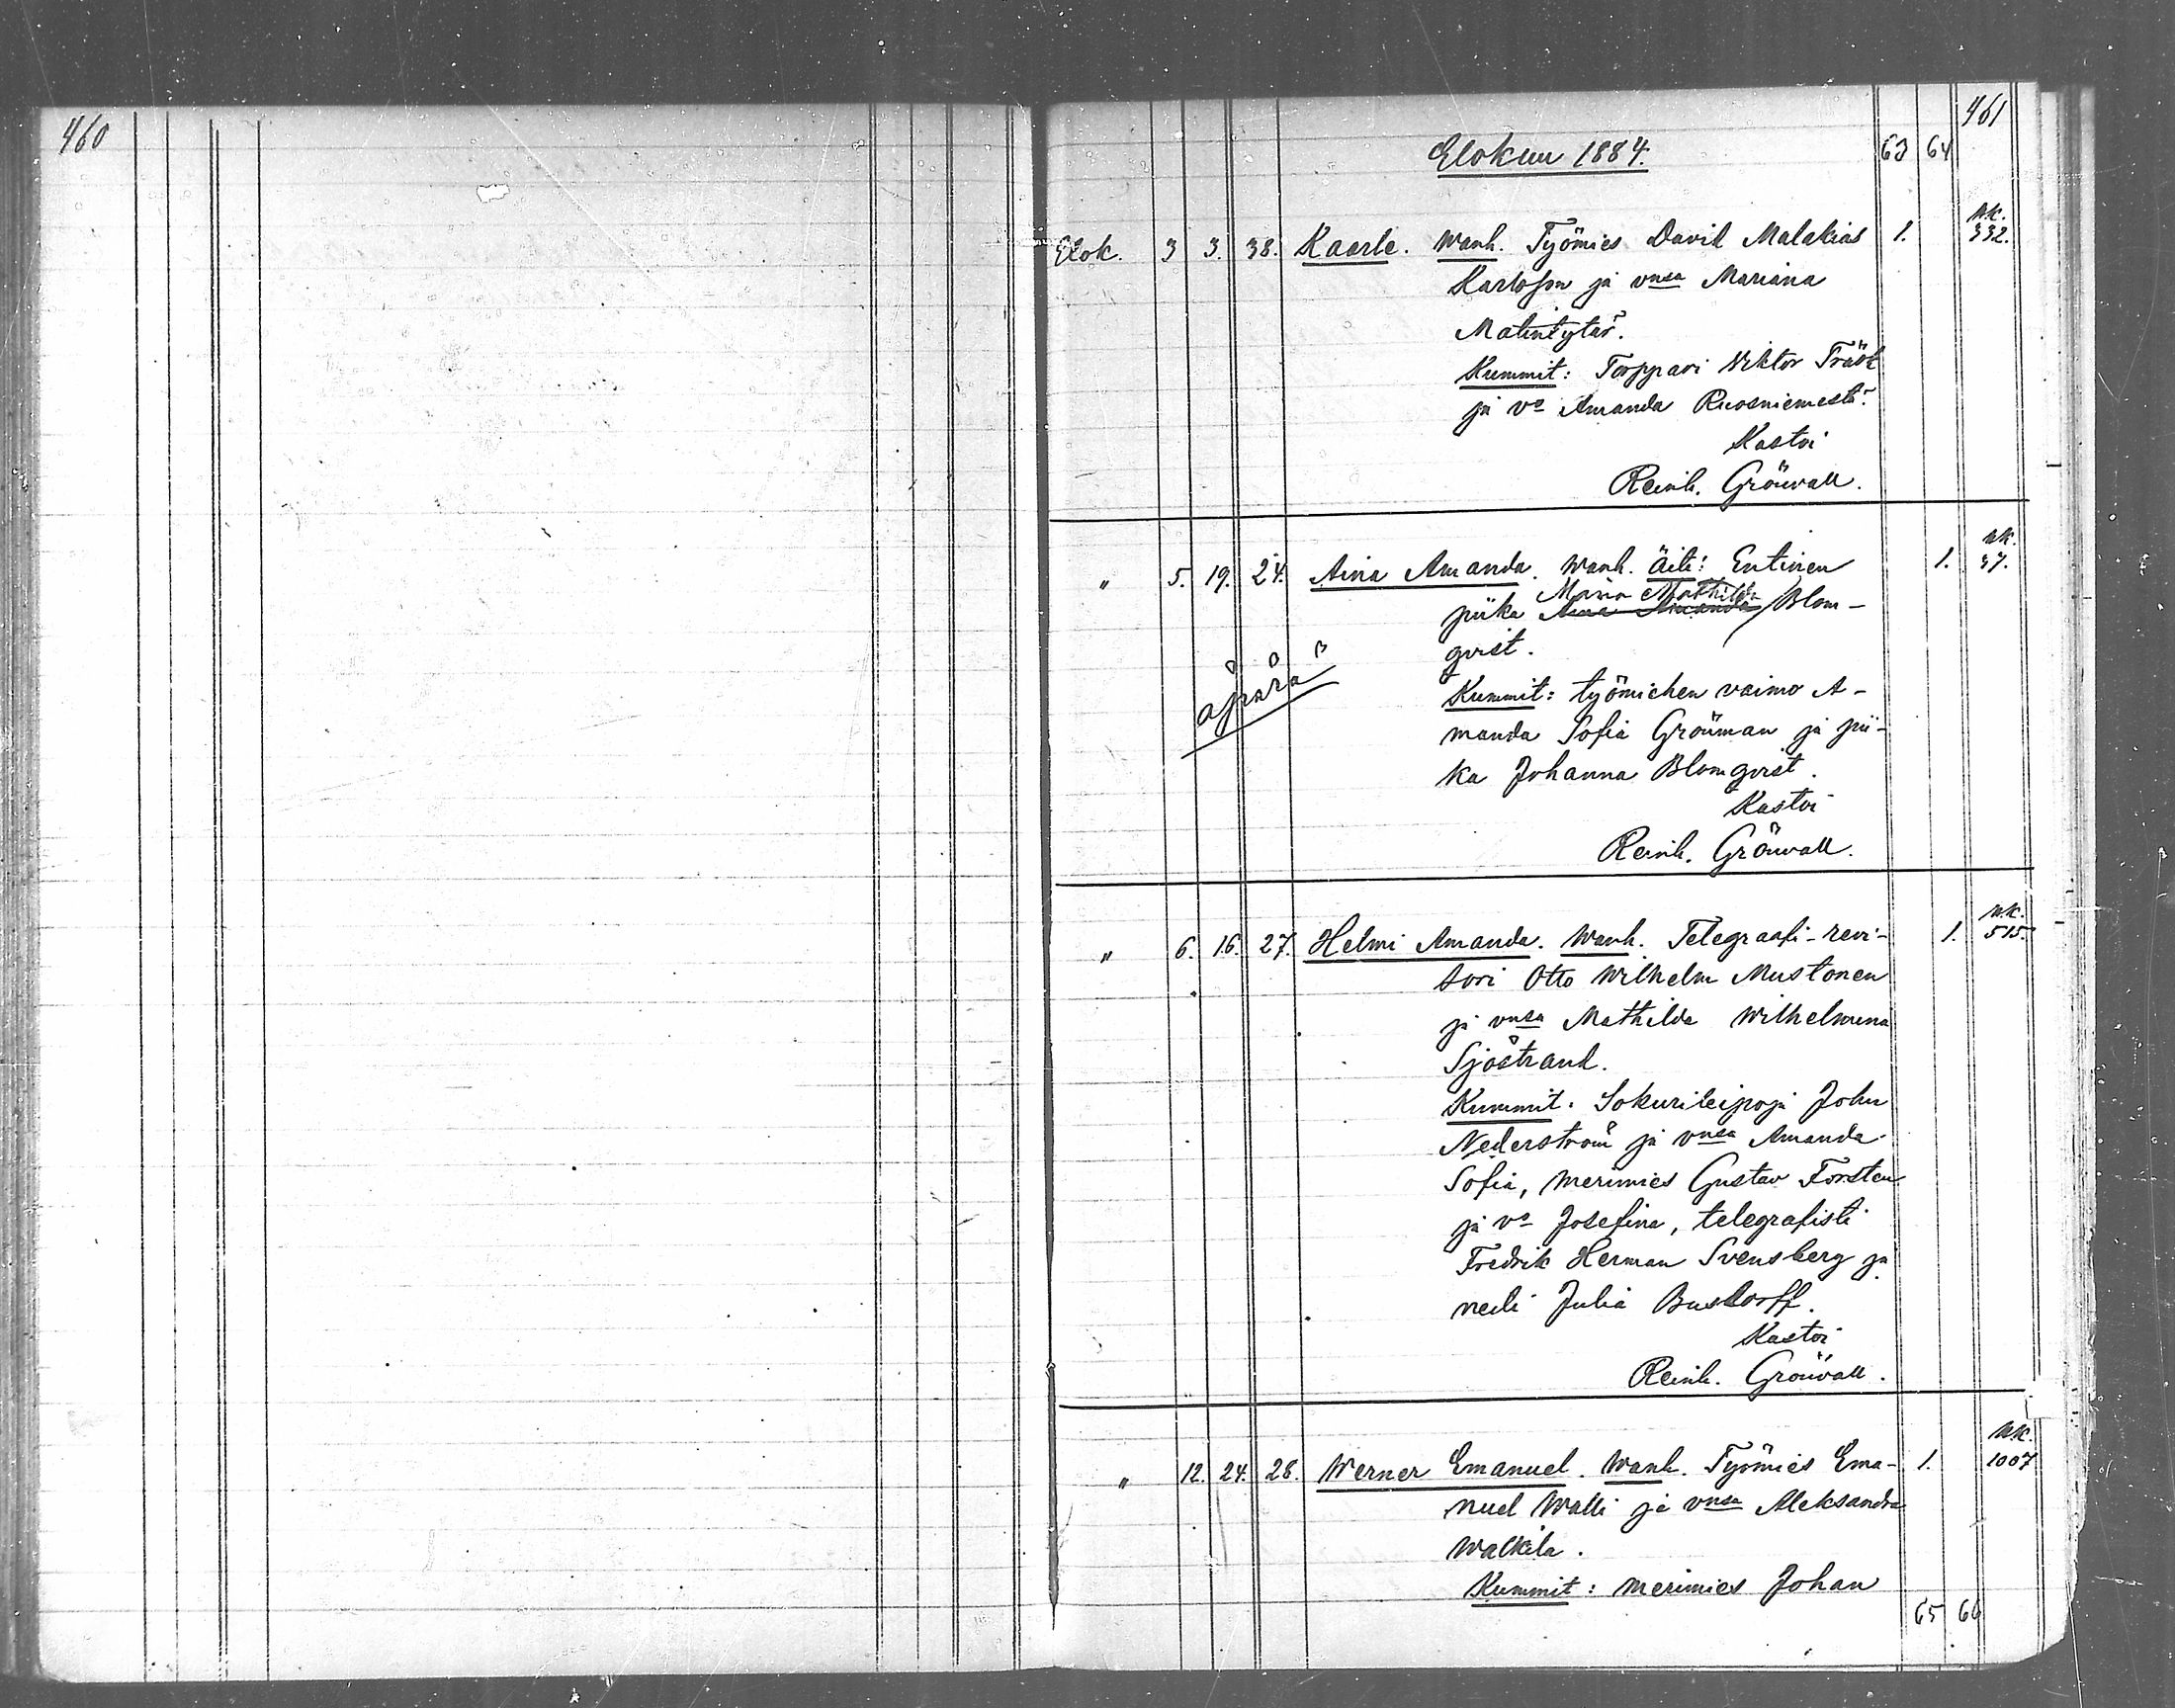 460
461
Elokuu 1884.
63 64
Elok. 3 3. 38. Kaarle. Wanh. Työmies David Malakias 1. RK. 332.
Karlsson ja vnsa Mariana
Matintytär.
Kummit: Torppari Viktor Träsk
ja vo Amanda Ruosniemestä.
Kastoi
Reinh. Grönvall.
" 5. 19. 24. Aina Amanda. Wanh. Äiti: Entinen 1. RK. 37.
Maria Mathilda
piika Blom-
qvist.
äpärä
Kummit: työmiehen vaimo A-
manda Sofia Grönman ja pii-
ka Johanna Blomqvist.
Kastoi
Reinh. Grönvall.
" 6. 16. 27. Helmi Amanda. Wanh. Telegraafi-revi- 1. RK. 515.
sori Otto Wilhelm Mustonen
ja vnsa Mathilda Wilhelmina
Sjöstrand.
Kummit. Sokurileipoja John
Nederström ja vnsa Amanda
Sofia, merimies Gustav Forsten
ja vo Josefina, telegrafisti
Fredrik Herman Svensberg ja
neiti Julia Busdorff.
Kastoi
Reinh. Grönvall.
" 12. 24. 28. Werner Emanuel. Wanh. Työmies Ema- 1. RK. 1007
nuel Walli ja vnsa Aleksandra
Walkila.
Kummit: merimies Johan
65 66